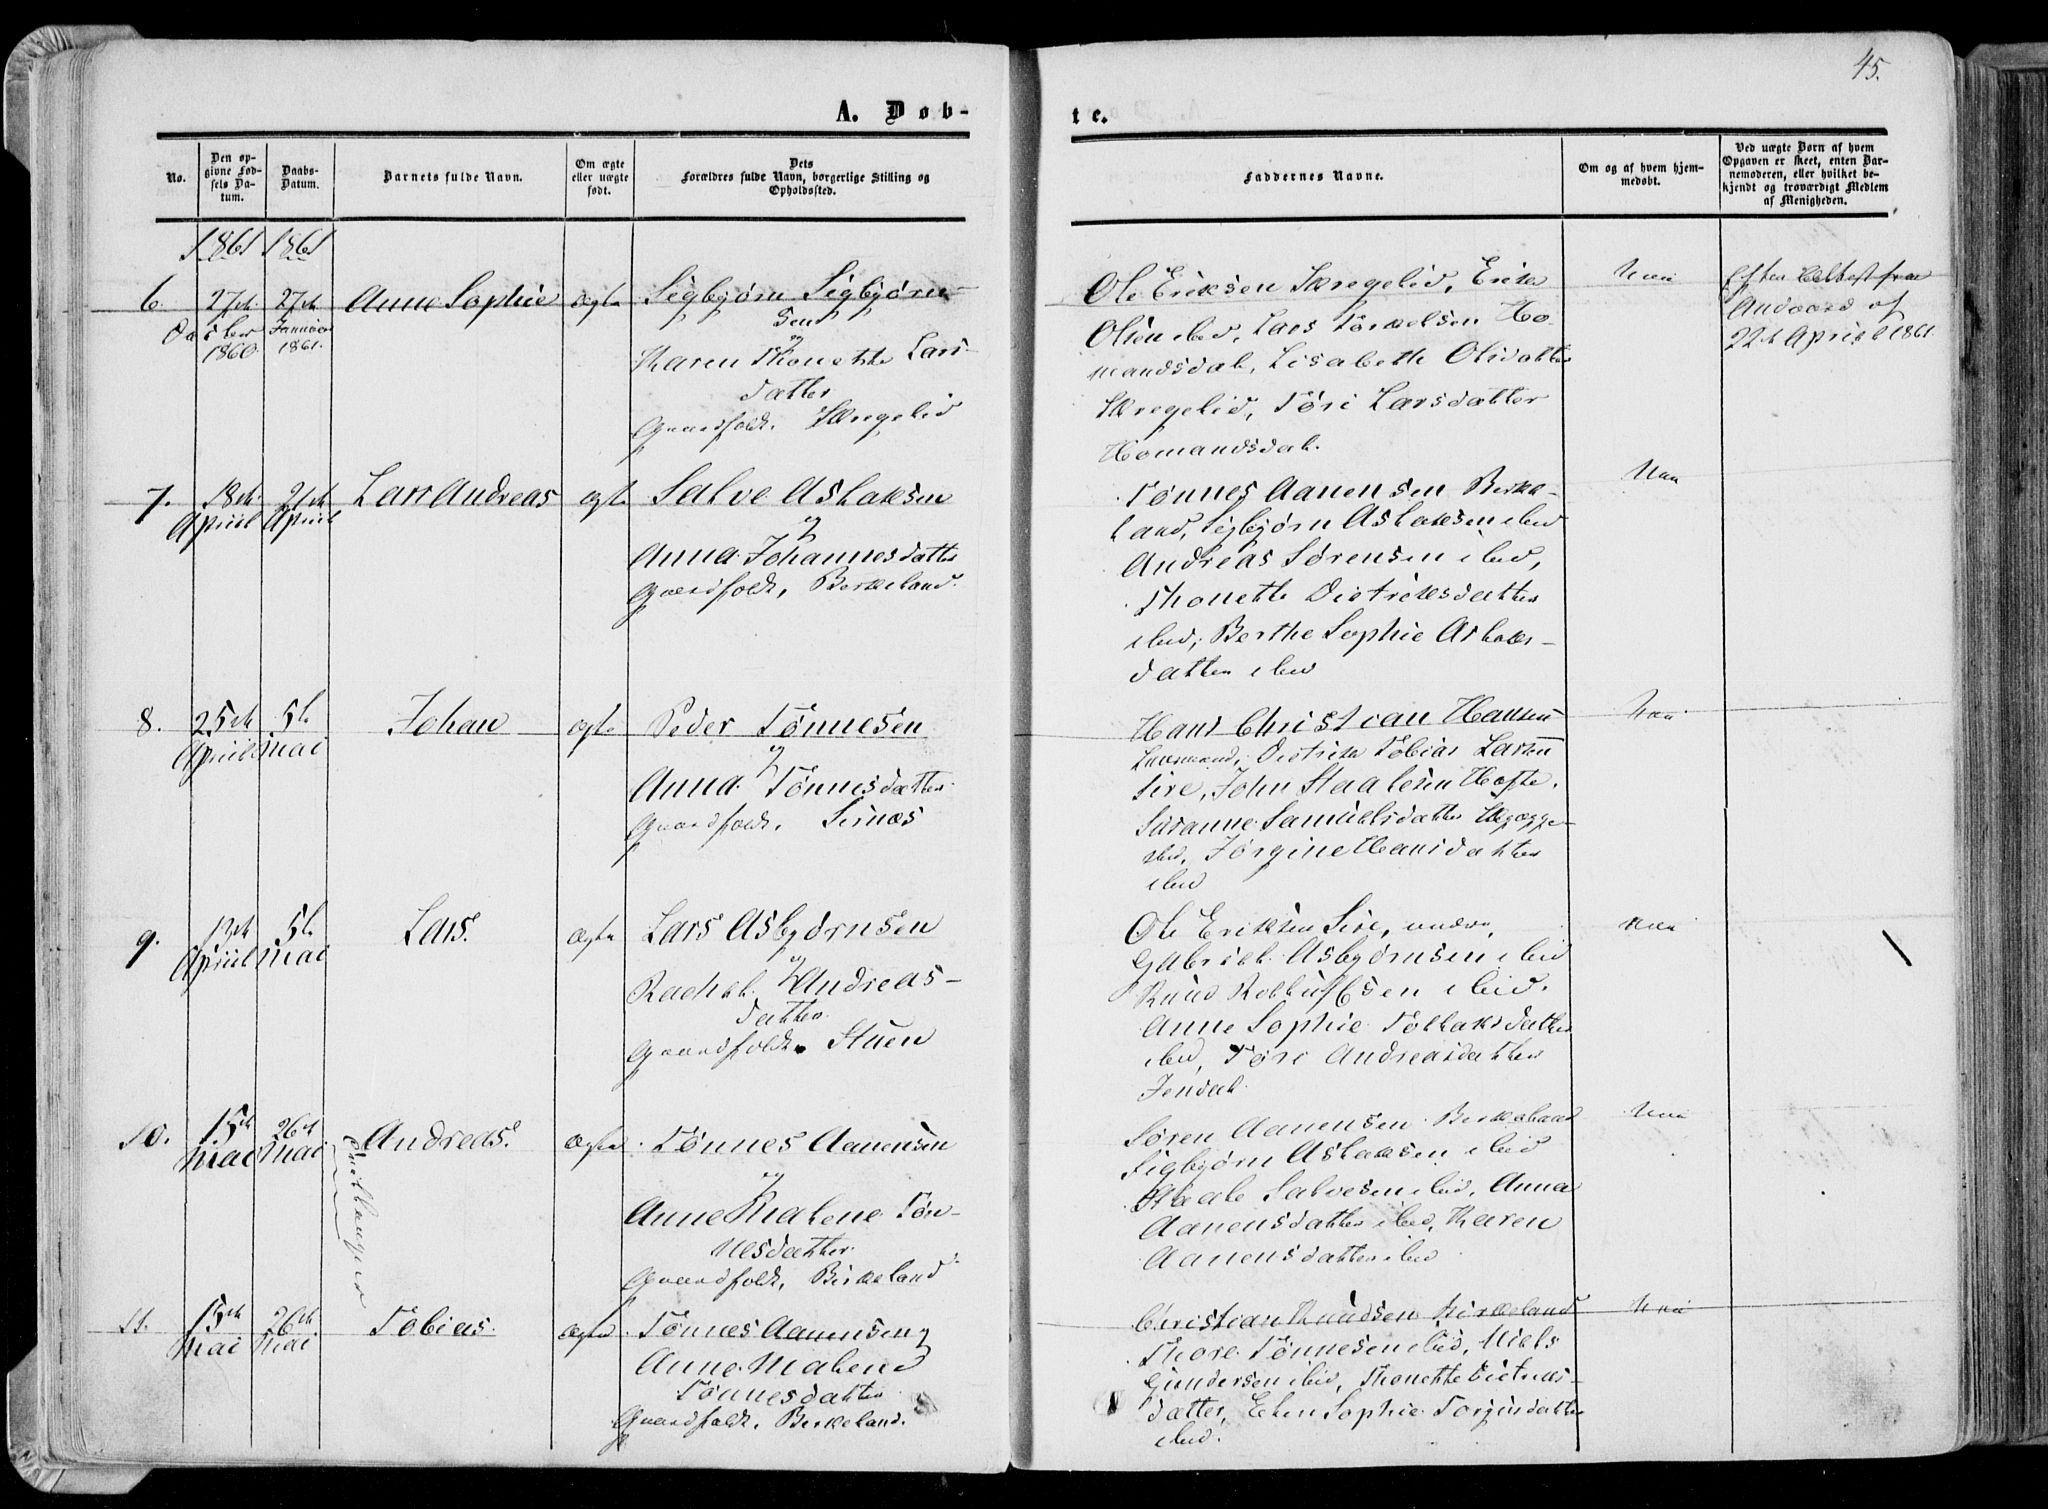 45.
A. Døb-
te.
No.
Den op-
givne Fød-
sels Da-
tum.
Daabs-
Datum.
Barnets fulde Navn.
Om ægte
eller uægte
født.
Dets
Forældres fulde Navn, borgerlige Stilling og
Opholdssted.
Faddernes Navne.
Om og af hvem hjem-
medøbt.
Ved uægte Børn af hvem
Opgaven er skeet, enten Bar-
nemoderen, eller hvilket be-
kjendt og troværdigt Medlem
af Menigheden.
1861 1861
6.
27de
1860.
27de
Januar
1861.
Anne Sophie
ægte
Sigbjørn Sigbjørn-
sen
og
Karen Thonette Lars-
datter
Gaardfolk, Skregelid
Ole Eriksen Skregelid, Erik
Olsen ibid, Lars Torkelsen Ho-
mandsdal, Lisabeth Olsdatter
Skregelid, Tøri Larsdatter
Homandsdal.
Nei
Efter Attest fra
22de April 1861.
7.
18de
April
21de
April
Lars Andreas
ægte
Salve Aslaksen
og
Anna Johannesdatter
Gaardfolk, Berkeland.
Tønnes Aanensen Berke-
land, Sigbjørn Aslaksen ibid
Andreas Sørensen ibid,
Thonette Dietriksdatter
ibid, Berthe Sophie Aslaks-
datter ibid
Nei
8.
25de
April
5te
Mai
Johan
ægte
Peder Tønnesen
og
Anna Tønnesdatter
Gaardfolk, Sirnæs
Hans Christian Hansen
Lensmand, Dietrik Tobias Larsen
Sire, John Staalesen Hafte,
Susanne Samuelsdatter
ibid, Jørgine Hansdatter
ibid
Nei
9.
April
5te
Mai
Lars.
ægte
Lars Asbjørnsen
og
Rachel Andreas-
datter
Gaardfolk, Stuen
Ole Eriksen Sire,
Gabriel Asbjørnsen ibid
Knud Rolleifsen ibid.
Anne Sophie Tollaksdatter
ibid, Tøri Andreasdatter
Jendal.
Nei
10.
15de
Mai
26de
Mai
Andreas.
Tvillinger
ægte
Tønnes Aanensen
og
Anne Malene Tøn-
nesdatter
Gaardfolk, Birkeland
Søren Aanensen Berkeland
Sigbjørn Aslaksen ibid
Staale Salvesen ibid, Anna
Aanensdatter ibid, Karen
Aanensdatter ibid
Nei
11.
15de
Mai
26de
Mai
Tobias.
ægte
Tønnes Aanensen og
Anne Malene
Tønnesdatter
Gaardfolk, Berkeland.
Christian Knudsen Kirkeland
Thore Tønnesen ibid, Niels
Gundersen ibid, Thonette Dietriks-
datter, Elen Sophie Torjusdatter
ibid.
Nei